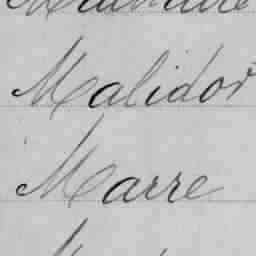 Malidor
Marre